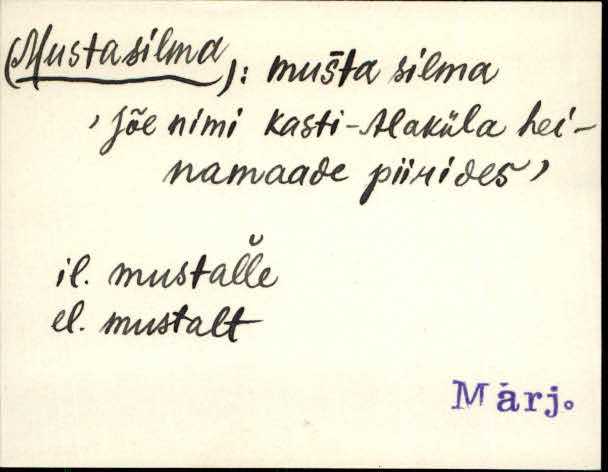 (Mustasilma): mus̄ta silma
'jõe nimi Kasti-Alaküla hei-
namaade piirides'
il. mustal̆l̆e
el. mustalt
Märj.